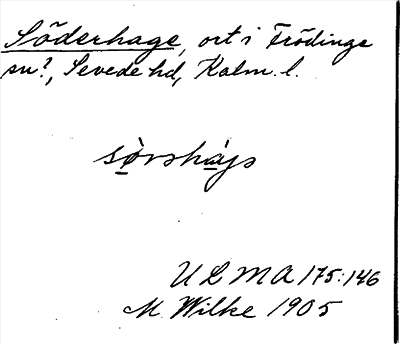 Söderhage, ort i Frödinge
sn?, Sevede hd, Kalm. l.
sòrshájs
ULMA 175:146
M. Wilke 1905